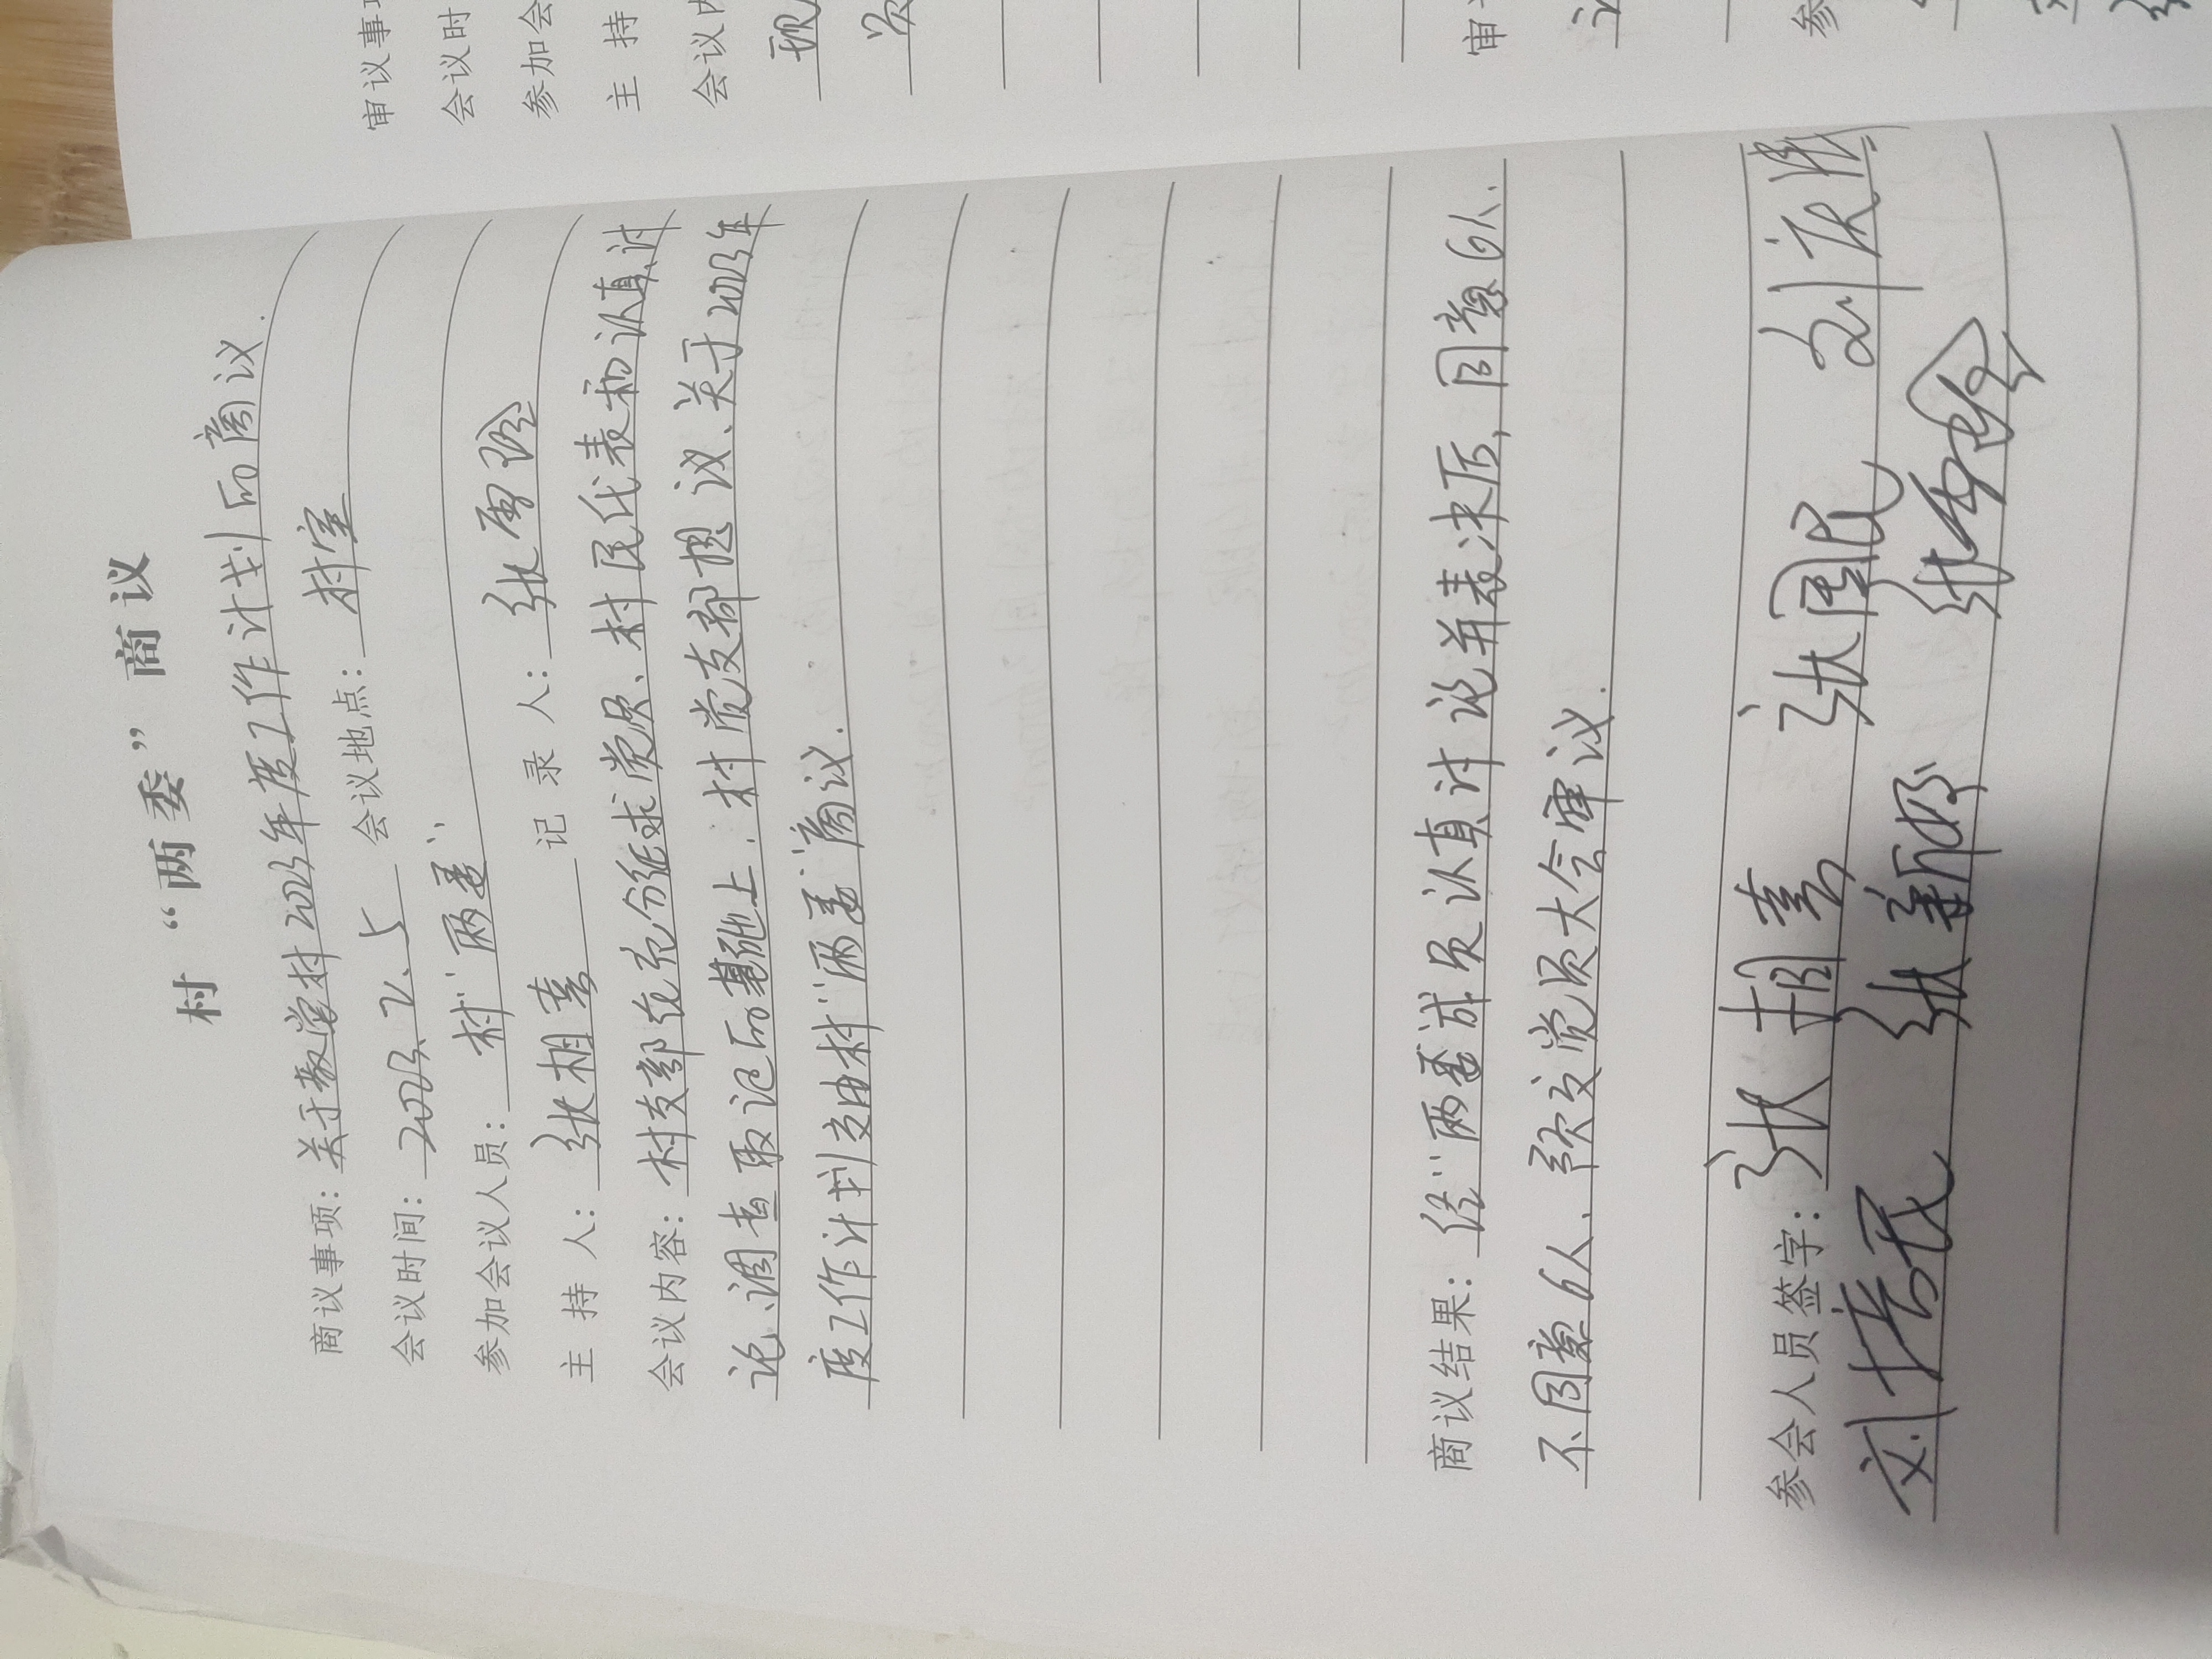 村“两委”商议
商议事项：关于教堂村2023年度工作计划的商议.
会议时间：2023.2.5 会议地点：村室
参加会议人员：村“两委”
主持人：张相喜 记录人：张雪玲
会议内容：村支部在充分征求党员、村民代表和认真讨
论、调查取记的基础上，村党支部提议、关于2023年
度工作计划交由村“两委”商议.
商议结果：经“两委成员认真讨论并表决后，同意6人、
不同意6人，预交党员大会审议.
参会人员签字：张相喜 张国民 刘庆
刘培民 张新婷 张雪玲
审议事项
会议时
参加会
主持
会议内
现
员
审
参